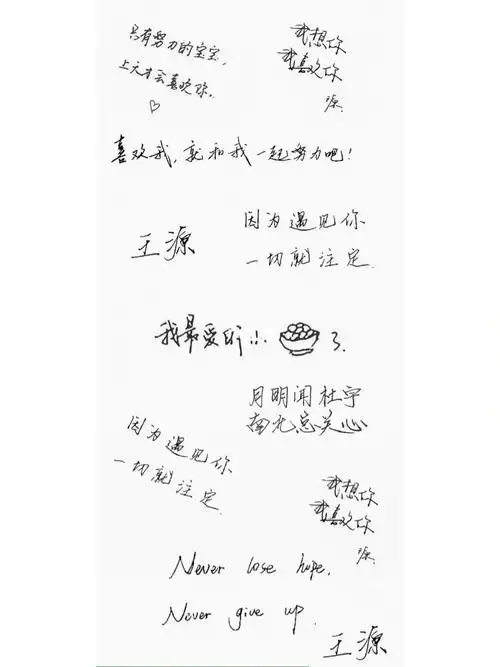 只有努力的宝宝,
上天才会喜欢你.
我想你
我喜欢你
源.
喜欢我,就和我一起努力吧!
王源
因为遇见你
一切就注定.
我最爱的!! 了.
月明闻杜宇
南北总关心
因为遇见你
一切就注定.
我想你
我喜欢你
源.
Never lose hope.
Never give up.
王源